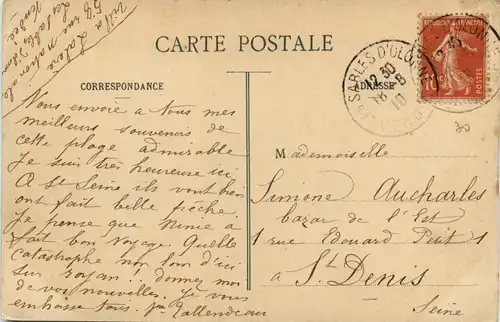 Villa Lazare
58 rue Nationale
Les Sables d'Olonne
Vendée
CARTE POSTALE
CORRESPONDANCE
ADRESSE
SABLES D'OLONNE
12 30
18 -8
10
10
POSTES
30
Nous envoie a Tous mes
meilleurs souvenirs de
cette plage admirable
Je suis très heureuse ici
a St Seine ils vont bien
ont fait belle pêche.
Je pense que Mimie a
fait bon voyage. Quelle
catastrophe non loin d'ici
sur Royan! donne moi
de vos nouvelles. Je vous
embrasse tous. Tallendeau
Mademoiselle
Simone Aucharles
bazar de l'Est
1 rue Edouard Petit 1
a St Denis
Seine